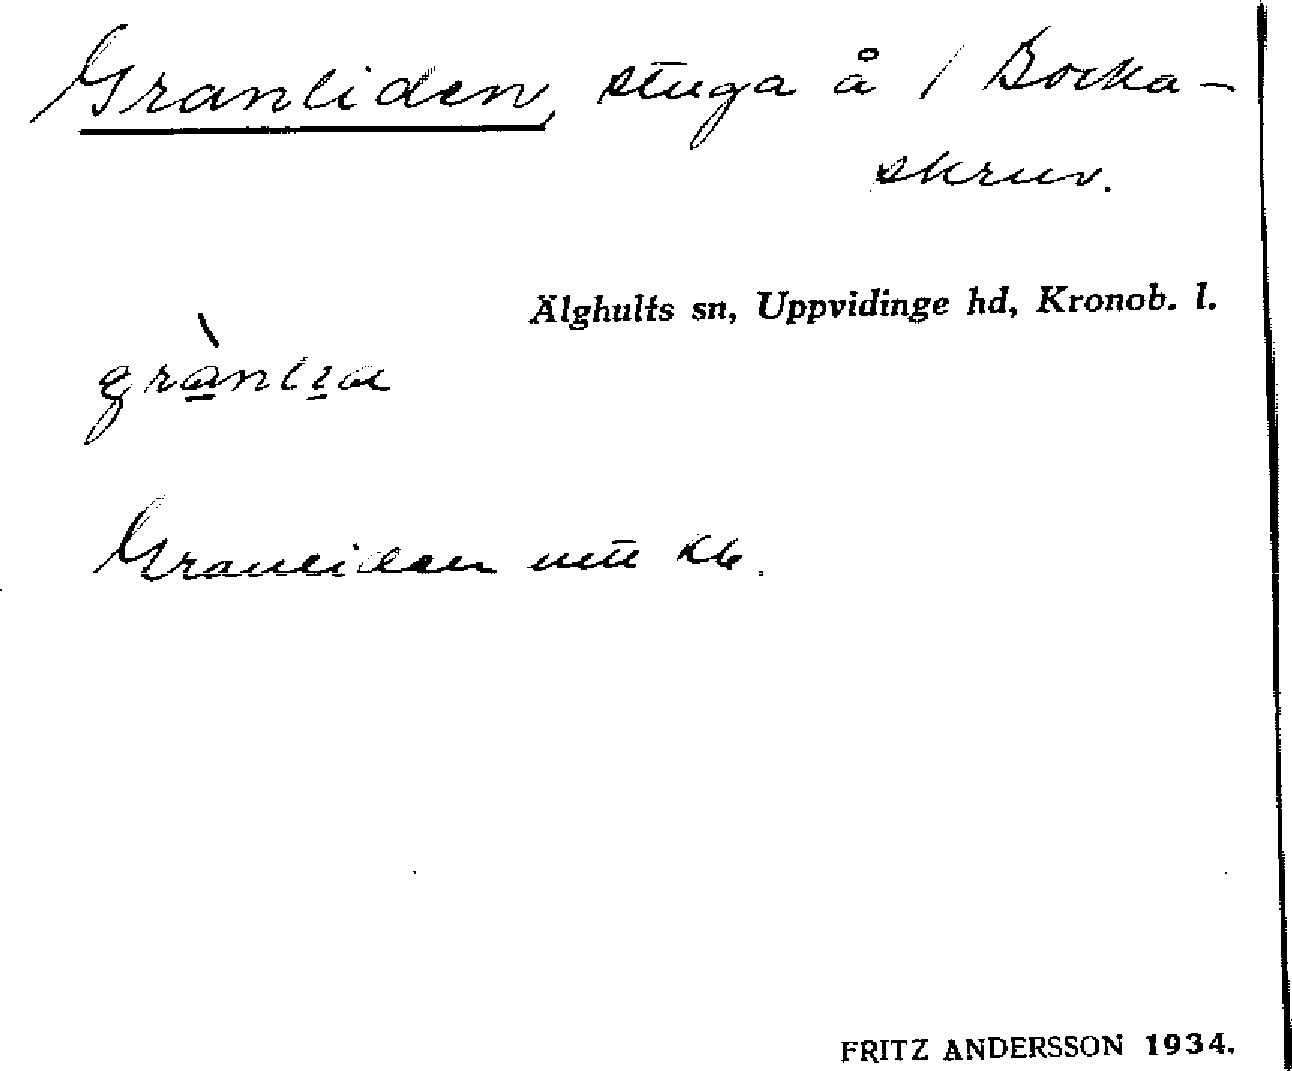 Granliden, stuga å / Bocka-
skruv.
Älghults sn, Uppvidinge hd, Kronob. l.
Granliden
FRITZ ANDERSSON 1934.